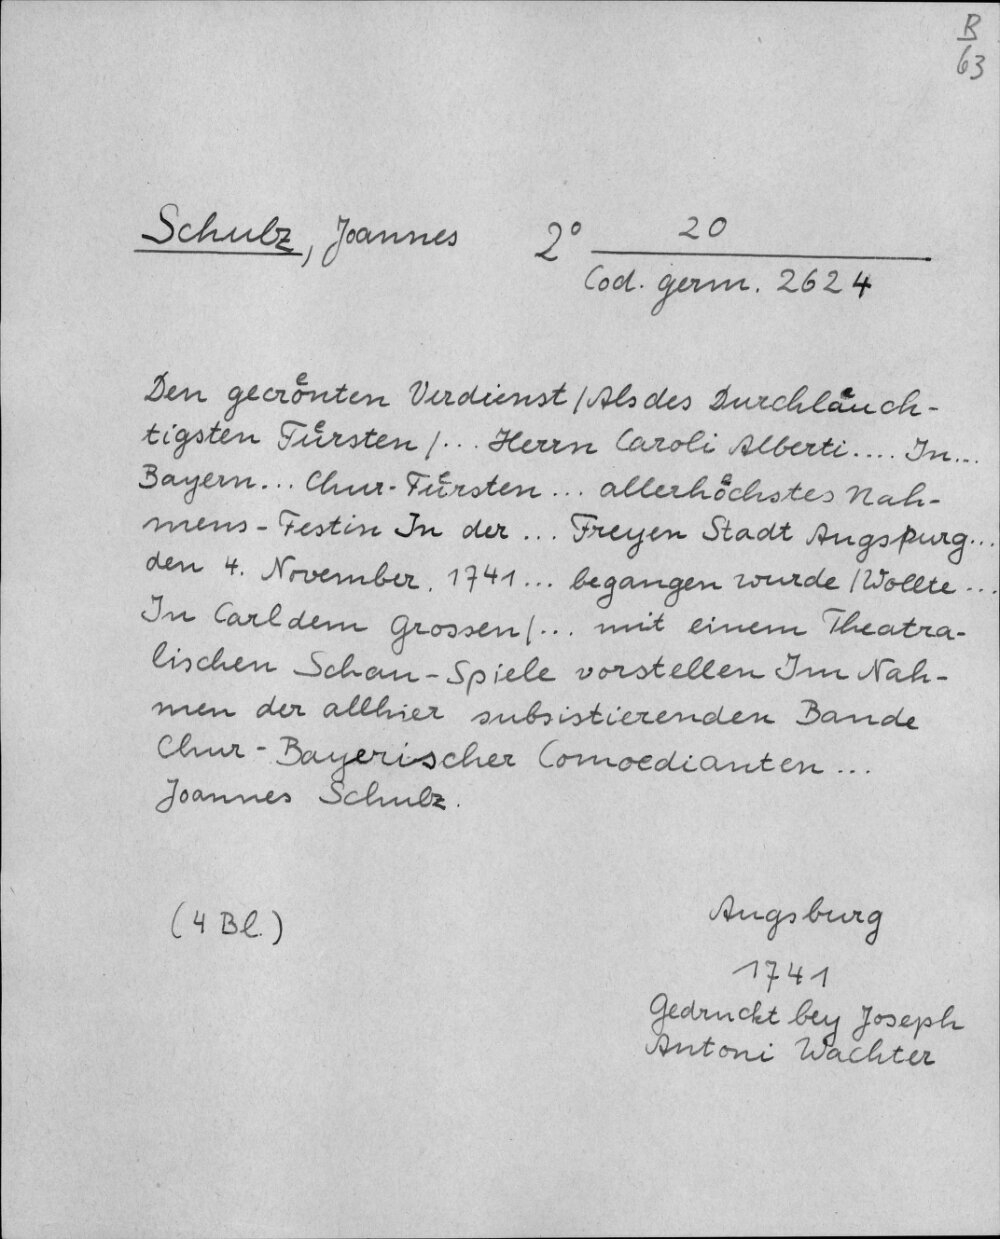 B
63
Schulz, Joannes 2° 20
Cod. germ. 2624
Den gecroͤnten Verdienst / Als des Durchlaͤuch-
tigsten Fuͤrsten /... Herrn Caroli Alberti .... In...
Bayern... Chur-Fuͤrsten ... allerhoͤchstes Nah-
mens-Festin In der ... Freyen Stadt Augspurg...
den 4. November. 1741 ... begangen wurde / Wollte ...
In Carl dem Grossen /... mit einem Theatra-
lischen Schau-Spiele vorstellen Im Nah-
men der allhier subsistierenden Bande
Chur-Bayerischer Comoedianten ...
Joannes Schulz.
(4 Bl.)
Augsburg
1741
Gedruckt bey Joseph
Antoni Wachter